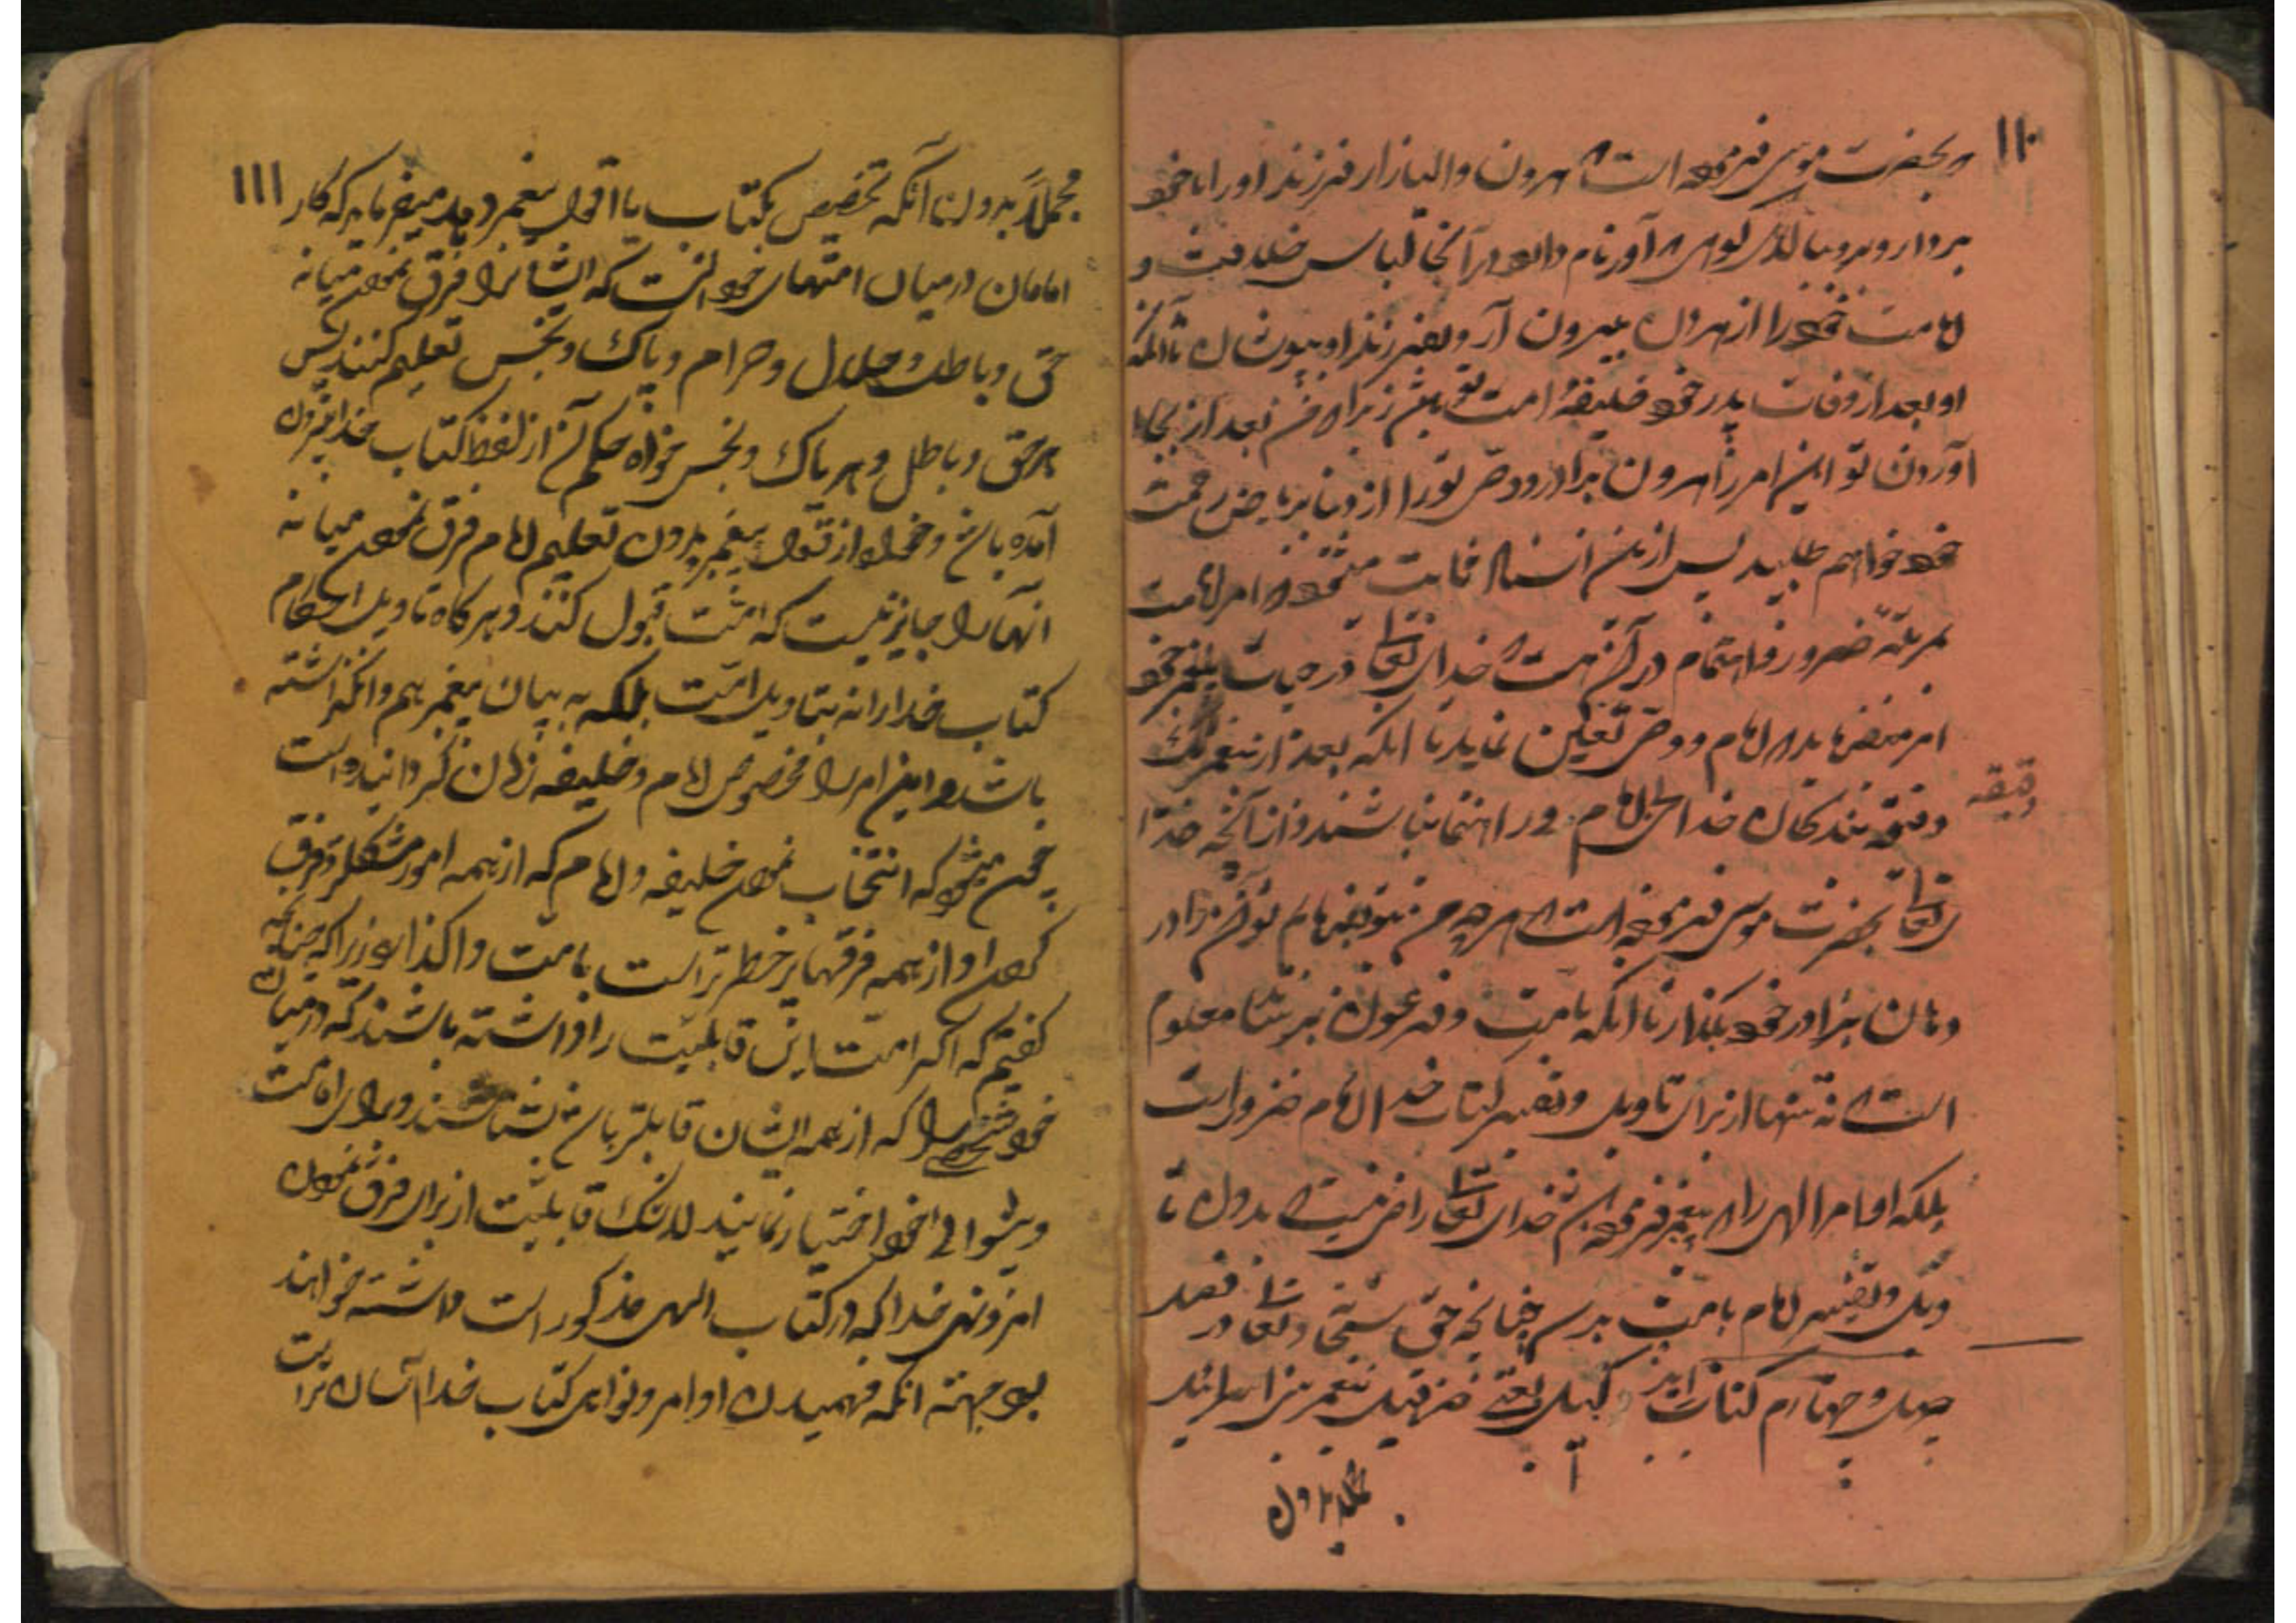 ۱۱۰
و بحضرت موسی فرموده است که هرون والیازار فرزند او را با خود
بردار و برو ببالای کوهی که آور نام دارد در آنجا لباس خلافت و
امامت خود را از هرون بیرون آر و بفرزند او بپوشان تا آنکه
او بعد از وفات پدر خود خلیفهٔ امت تو باشد زیرا که من بعد از بجا
آوردن تو این امر را هرون برادر و وصی تو را از دنیا بریاض رحمت
خود خواهم طلبید پس ازین انشاء ثابت میشود که امر امامت
بمرتبه ضرور و اهتمام در آن هست که خدای تعالی در حیات پیغمبر خود
امر میفرماید که امام و وصی تعیین نماید تا آنکه بعد از پیغمبر یک
دقیقه بندگان خدا بی امام و راهنما نباشند و از آنچه خدا
دقیقه
ی تعالی بحضرت موسی فرموده است که هرچه من بتو میفرمایم تو آن را در
دهان برادر خود بگذار تا آنکه بامت و فرعون برساند معلوم
است که نه تنها از برای تاویل و تفسیر کتاب خدا امام ضرور است
بلکه اوامر الهی را که پیغمبر فرموده باشد خدای تعالی راضی نیست که بدون تا
ویل و تفسیر امام بامت برسد چنانچه حق سبحانه و تعالی در فصل
چهل و چهارم کتاب ایزکیل یعنی حزقیل پیغمبر بنی اسرائیل
مجملا بدون
۱۱۱
مجملاً بدون آنکه تخصیص بکتاب یا اقوال پیغمبر دهد میفرماید که کار
امامان درمیان امتهای خود آنست که ایشانرا فرق نمودن میانه
حق و باطل و حلال و حرام و پاک و نجس تعلیم کنند پس
هر حق و باطل و هر پاک و نجس خواه حکم آن از لفظ کتاب خدا بیرون
آمده باشد و خواه از قول پیغمبر بدون تعلیم امام فرق نمودن میانه
آنها را جایز نیست که امت قبول کنند و هرگاه تاویل احکام
کتاب خدا را نه بتاویل امت بلکه به بیان پیغمبر هم وانگذاشته
باشد و این امر را مخصوص امام و خلیفه زمان گردانیده است
چون میشود که انتخاب نمودن خلیفه و امام که از همه امور مشکلتر و فرق
کردن او از همه فرقها پر خطر تر است بامت واگذارد زیرا که چنانچه
گفتیم که اگر امت این قابلیت را داشته باشند که درمیان
خود شخصی را که از همه ایشان قابلتر باشد بشناسند و برای امامت
و پیشوائی خود اختیار نمایند لابد قابلیت از برای فرق نمودن
امر و نهی خدا که در کتاب الهی مذکور است داشته خواهند
بود بجهة آنکه فهمیدن اوامر و نواهی کتاب خدا آسان تر است